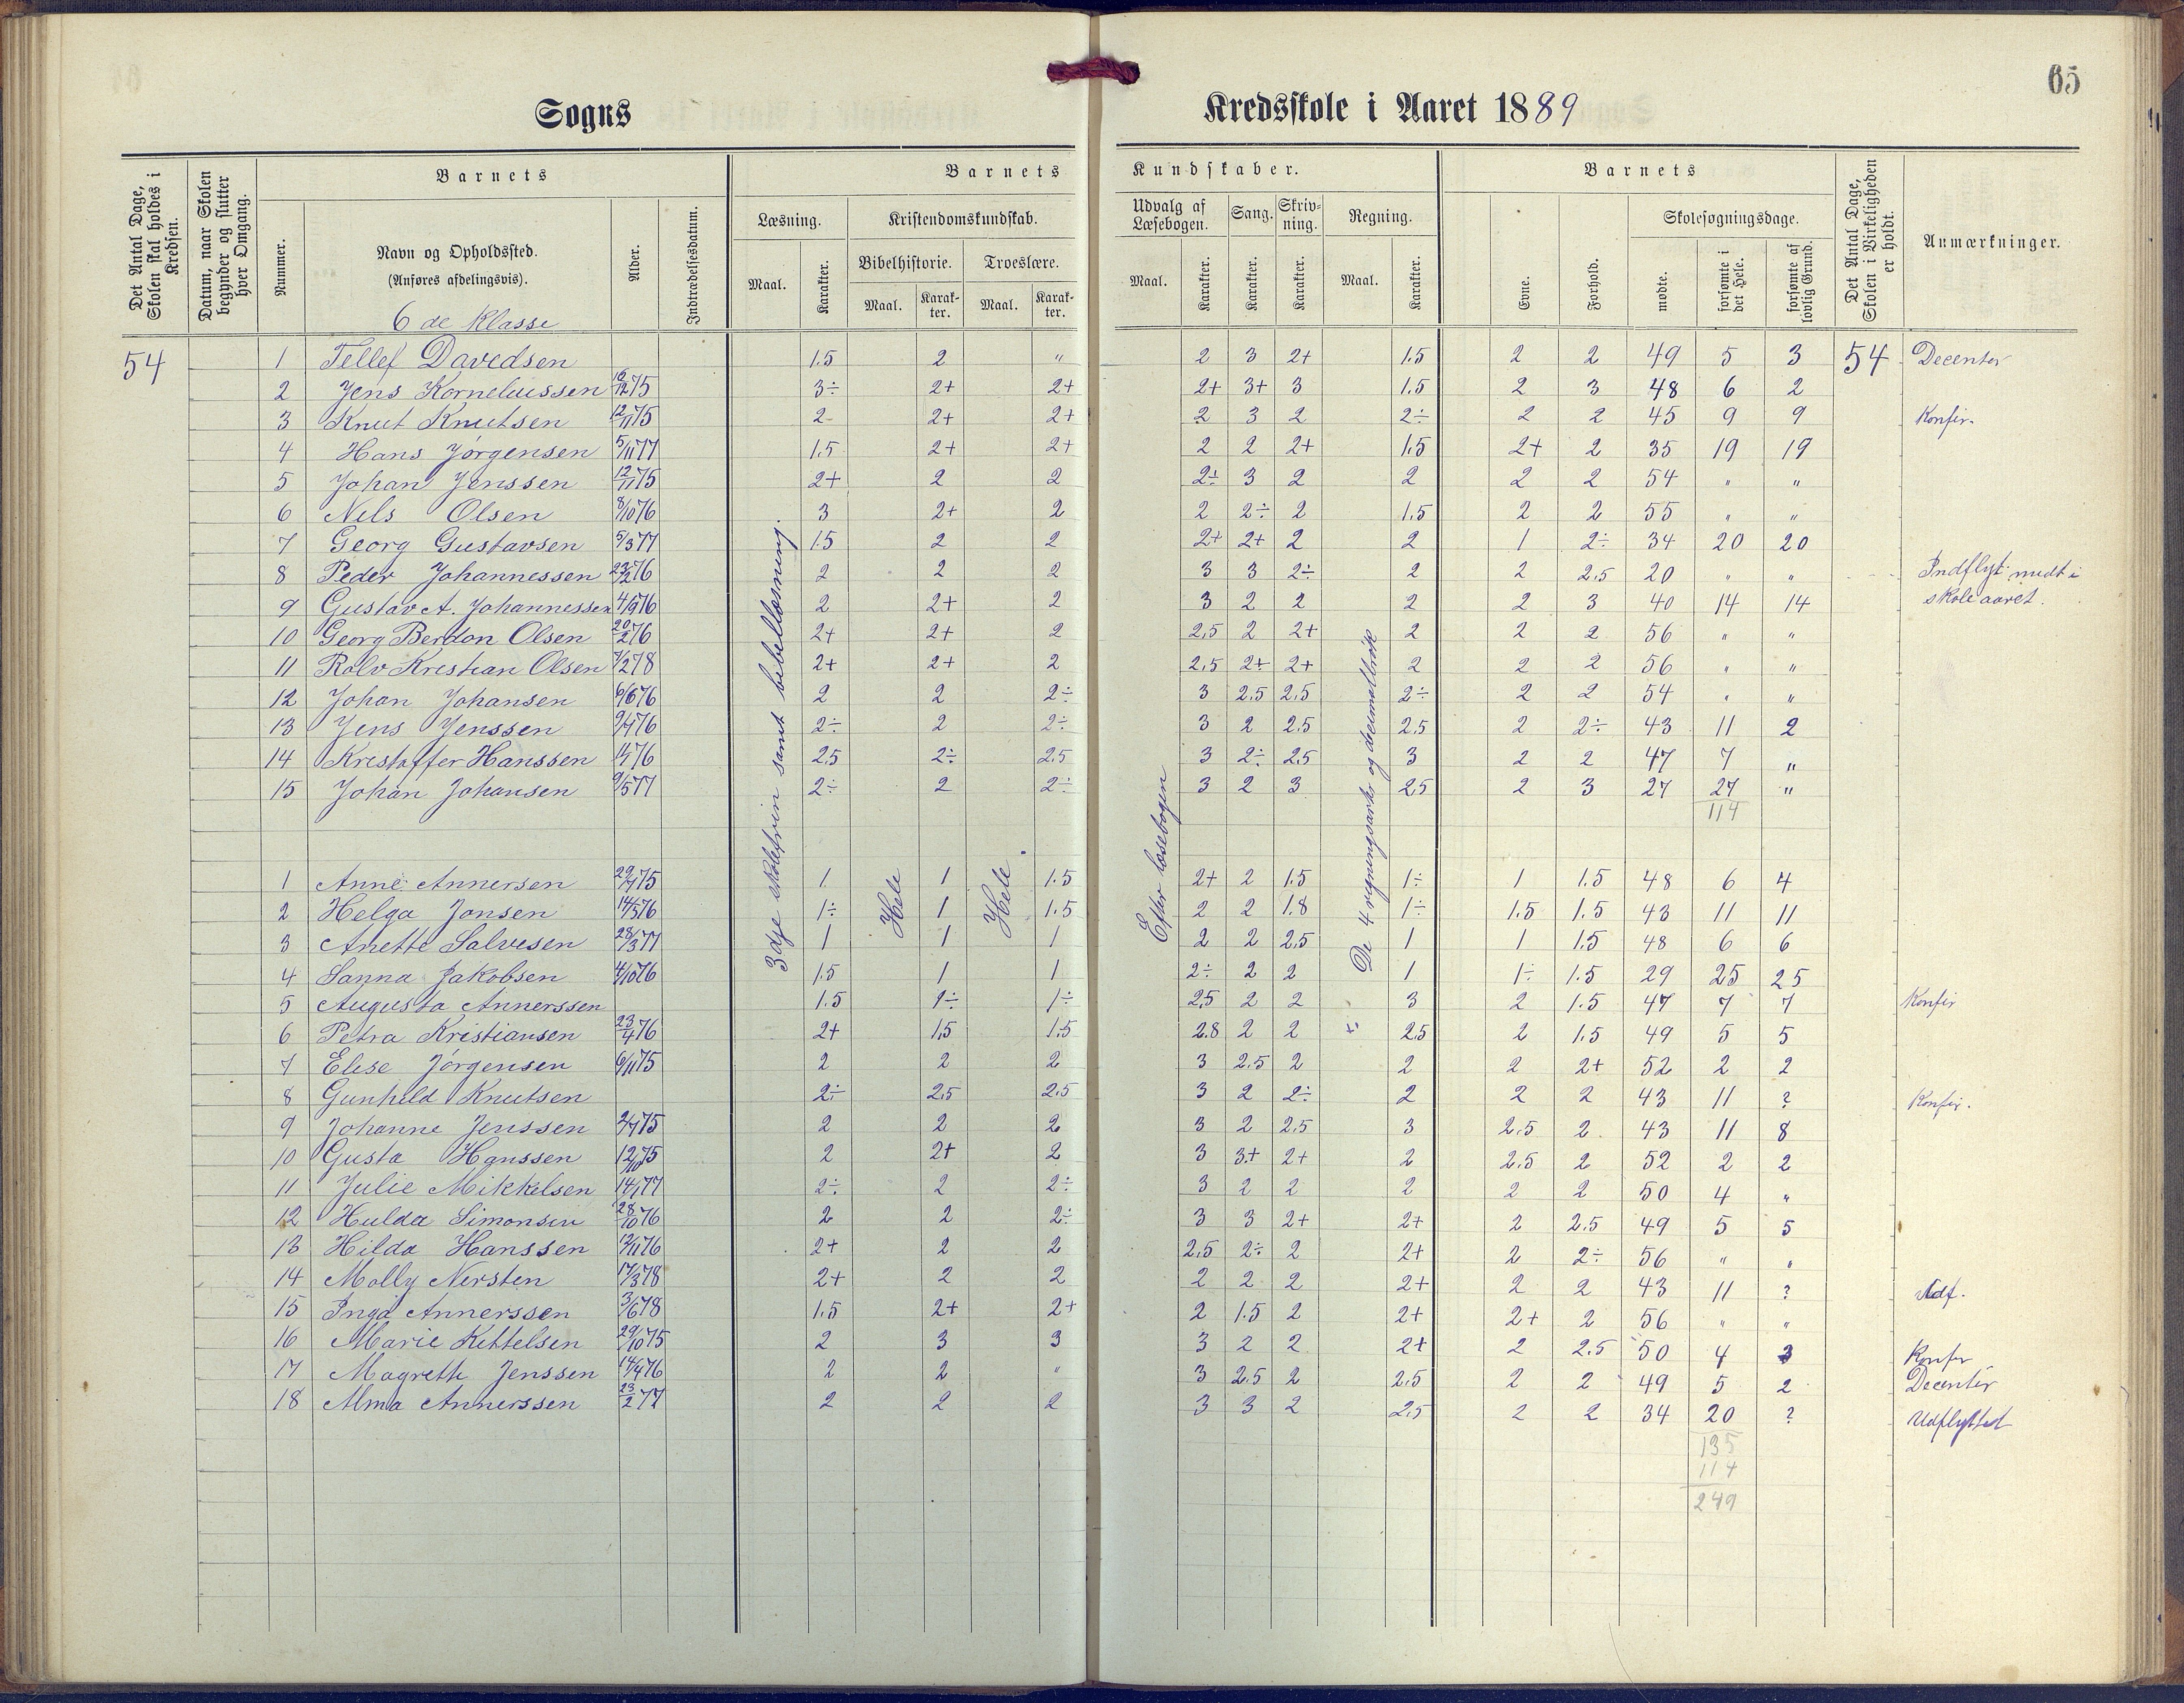 65
Sogns Kredsskole i Aaret 1889
Det Antal Dage, Skolen skal holdes i Kredsen.
Datum, naar Skolen begynder og slutter hver Omgang.
Barnets
Nummer.
Navn og Opholdssted.
(Anføres afdelingsvis).
6 de Klasse
Alder.
Indtrædelsesdatum.
Barnets Kundskaber.
Læsning.
Maal. Karakter.
Kristendomskundskab.
Bibelhistorie. Troeslære.
Maal. Karakter. Maal. Karakter.
Udvalg af Læsebogen.
Maal. Karakter.
Sang. Karakter.
Skrivning. Karakter.
Regning.
Maal. Karakter.
Barnets
Evne. Forhold.
Skolesøgningsdage.
mødte. forsømte i det Hele. forsømte af lovlig Grund.
Det Antal Dage, Skolen i Virkeligheden er holdt.
Anmærkninger.
3dje skoletrin samt bibellæsning.
Hele
Hele
Efter læsebogen
De 4 regningsarter og decimalbrøk
54 1 Tellef Davedsen 1.5 2 " 2 3 2+ 1.5 2 2 49 5 3 54 Decenter
2 Jens Korneliussen 16/12 75 3÷ 2+ 2+ 2+ 3+ 3 1.5 2 3 48 6 2
3 Knut Knutsen 12/11 75 2 2+ 2+ 2 3 2 2÷ 2 2 45 9 9 Konfir.
4 Hans Jörgensen 5/11 77 1.5 2+ 2+ 2 2 2+ 1.5 2+ 2 35 19 19
5 Johan Jenssen 12/11 75 2+ 2 2 2÷ 3 2 2 2 2 54 " "
6 Nels Olsen 8/10 76 3 2+ 2 2 2÷ 2 1.5 2 2 55 " "
7 Georg Gustavsen 5/3 77 1.5 2 2 2+ 2+ 2 2 1 2÷ 34 20 20
8 Peder Johannessen 76 2 2 2 3 3 2÷ 2 2 2.5 20 " " Indflyt. midt i
9 Gustav A. Johannessen 4/9 76 2 2+ 2 3 2 2 2 2 3 40 14 14 skoleaaret.
10 Georg Berdon Olsen 20/2 76 2+ 2+ 2 2.5 2 2+ 2 2 2 56 " "
11 Rolv Kristian Olsen 7/2 78 2+ 2+ 2 2.5 2+ 2+ 2 2 2 56 " "
12 Johan Johansen 6/6 76 2 2 2÷ 3 2.5 2.5 2÷ 2 2 54 " "
13 Jens Jenssen 9/4 76 2÷ 2 2÷ 3 2 2.5 2.5 2 2÷ 43 11 2
14 Kristoffer Hanssen 76 2.5 2÷ 2.5 3 2÷ 2.5 3 2 2 47 7 "
15 Johan Johansen 9/5 77 2÷ 2 2÷ 3 2 3 2.5 2 3 27 27 "
114
1 Anne Annersen 75 1 1 1.5 2+ 2 1.5 1÷ 1 1.5 48 6 4
2 Helga Jonsen 14/5 76 1÷ 1 1.5 2 2 1.8 1÷ 1.5 1.5 43 11 11
3 Anette Salvesen 28/3 77 1 1 1 2 2 2.5 1 1 1.5 48 6 6
4 Sanna Jakobsen 4/10 76 1.5 1 1 2÷ 2 2 1 1÷ 1.5 29 25 25
5 Augusta Annerssen 1.5 1÷ 1÷ 2.5 2 2 3 2 1.5 47 7 7 Konfir
6 Petra Kristiansen 23/4 76 2+ 1.5 1.5 2.8 2 2 2.5 2 1.5 49 5 5
7 Elese Jörgensen 6/11 75 2 2 2 3 2.5 2 2 2 2+ 52 2 2
8 Gunhild Knutsen 2÷ 2.5 2.5 3 2 2÷ 2 2 2 43 11 ? Konfir.
9 Johanne Jenssen 75 2 2 2 3 2 2.5 3 2.5 2 43 11 8
10 Gusta Hanssen 12/10 75 2 2+ 2 3 3+ 2+ 2 2.5 2 52 2 2
11 Julie Mikkelsen 14/1 77 2÷ 2 2÷ 3 2 2 2 2 2 50 4 "
12 Hulda Simonsen 28/10 76 2 2 2÷ 3 3 2+ 2+ 2 2.5 49 5 5
13 Hilda Hanssen 12/11 76 2+ 2 2 2.5 2÷ 2 2+ 2 2÷ 56 " "
14 Molly Nersten 17/3 78 2+ 2 2 2 2 2 2+ 2 2 43 11 ? Udf.
15 Inga Annerssen 3/6 78 1.5 2+ 2+ 2 1.5 2 2+ 2+ 2 56 " "
16 Marie Kittelsen 29/10 75 2 3 3 3 2 2 2+ 2 2.5 50 4 3 Konfir
17 Magreth Jenssen 14/4 76 2 2 " 3 2.5 2 2.5 2 2 49 5 2 Decenter
18 Alma Annerssen 23/2 77 2 2 2 3 3 2 2.5 2 2 34 20 ? Udflyttet
135
114
249